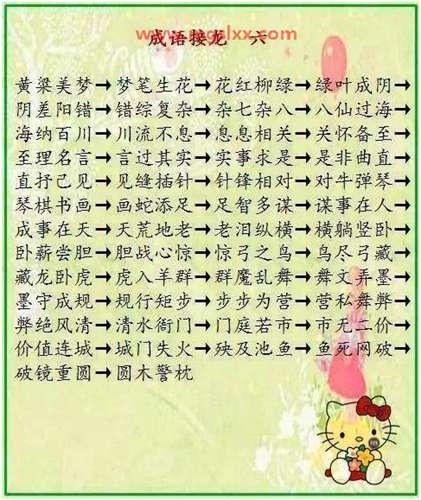 www.mgslxx.com
成语接龙 六
黄粱美梦→梦笔生花→花红柳绿→绿叶成阴→
阴差阳错→错综复杂→杂七杂八→八仙过海→
海纳百川→川流不息→息息相关→关怀备至→
至理名言→言过其实→实事求是→是非曲直→
直抒己见→见缝插针→针锋相对→对牛弹琴→
琴棋书画→画蛇添足→足智多谋→谋事在人→
成事在天→天荒地老→老泪纵横→横躺竖卧→
卧薪尝胆→胆战心惊→惊弓之鸟→鸟尽弓藏→
藏龙卧虎→虎入羊群→群魔乱舞→舞文弄墨→
墨守成规→规行矩步→步步为营→营私舞弊→
弊绝风清→清水衙门→门庭若市→市无二价→
价值连城→城门失火→殃及池鱼→鱼死网破→
破镜重圆→圆木警枕